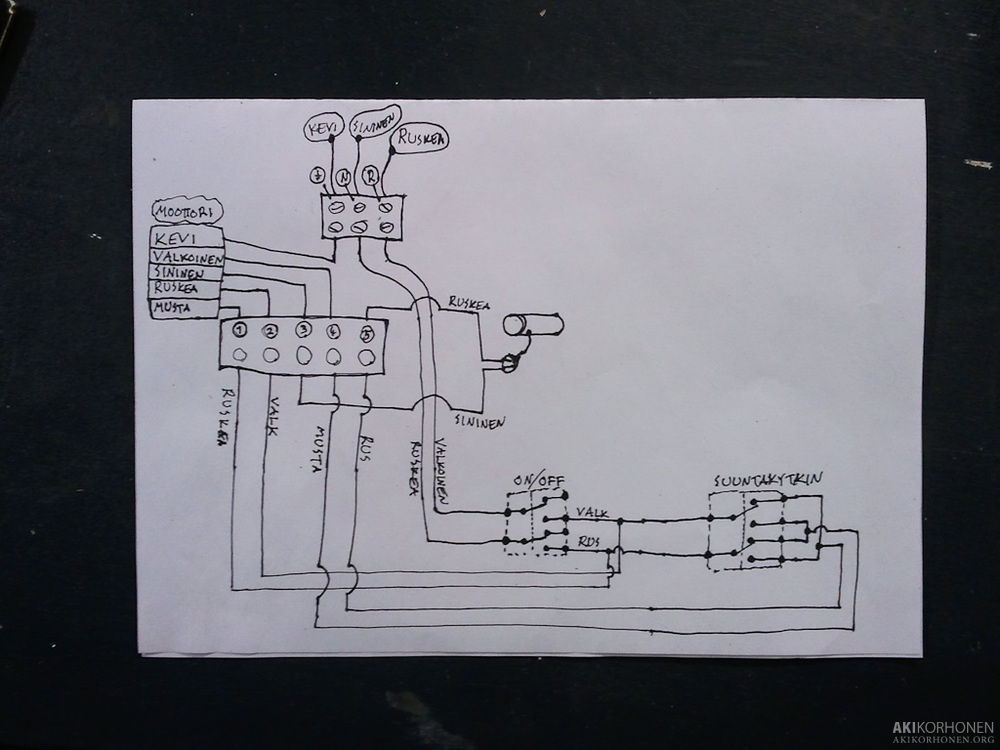 KEVI
SININEN
RUSKEA
N
R
MOOTTORI
KEVI
VALKOINEN
SININEN
RUSKEA
MUSTA
1 2 3 4 5
RUSKEA
SININEN
RUSKEA
VALK
MUSTA
RUS
RUSKEA
VALKOINEN
ON/OFF
VALK
RUS
SUUNTAKYTKIN
AKIKORHONEN
AKIKORHONEN.ORG